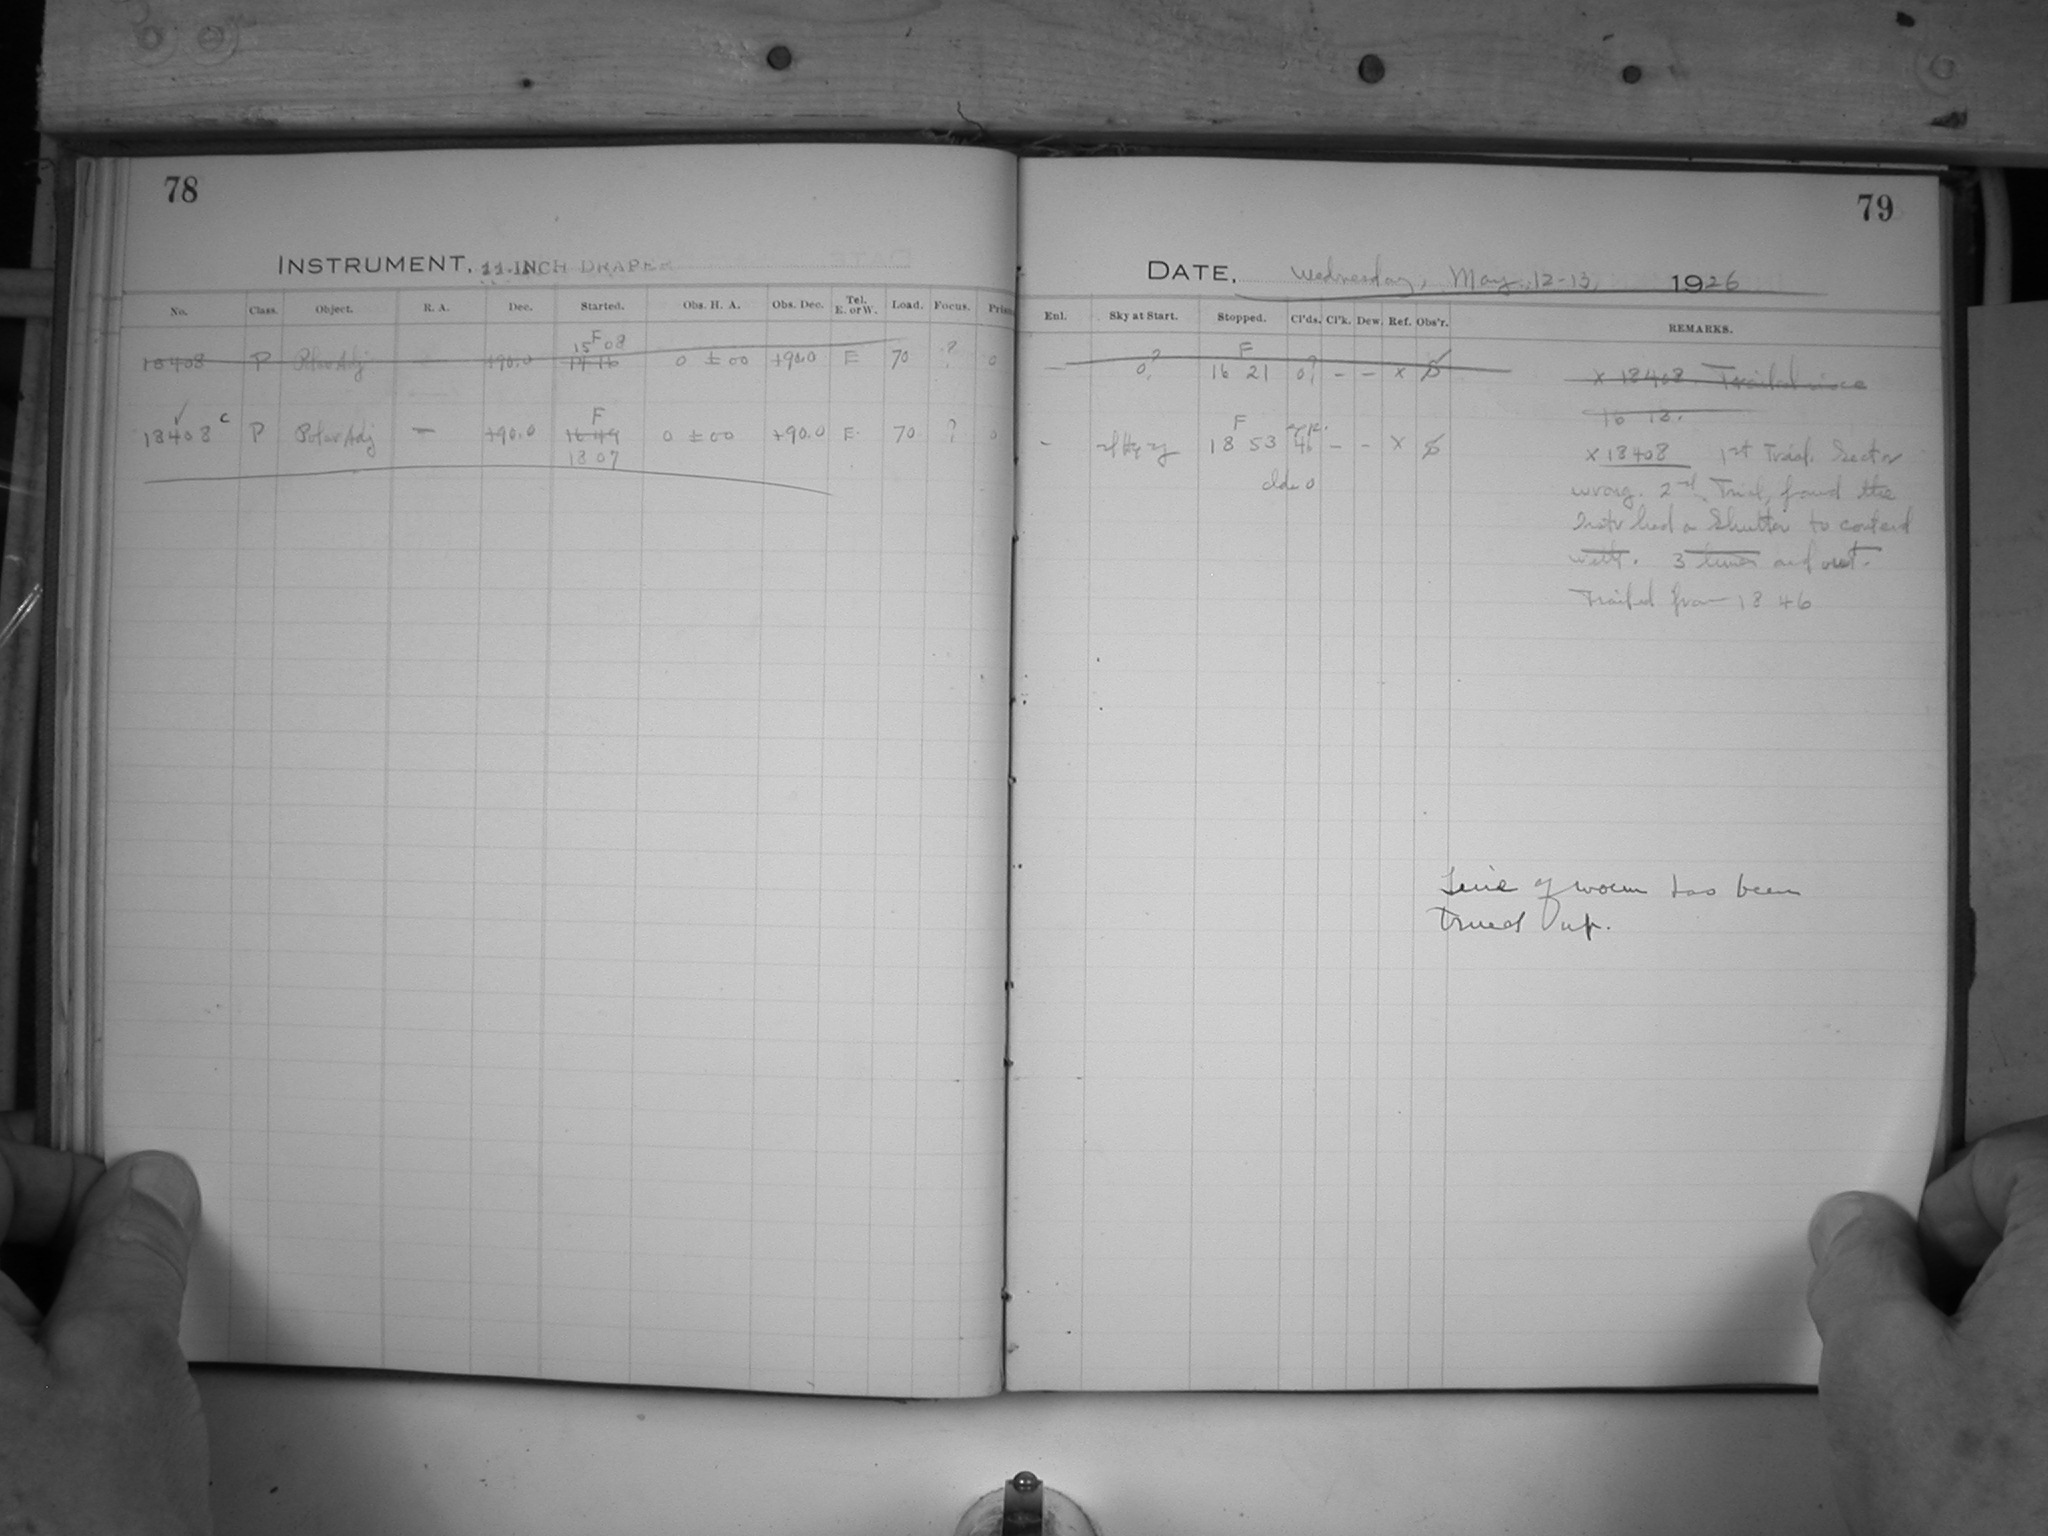 78
INSTRUMENT, 11-INCH DRAPER
No. Class. Object. R. A. Dec. Started. Obs. H. A. Obs. Dec. Tel. E. or W. Load. Focus. Pris
F
15 08
18408 P Polar Adj — +90.0 0 ±00 +90.0 E 70 ? 0
F
18408 c P Polar Adj — +90.0 16 49 0 ±00 +90.0 E. 70 ? 0
18 07
79
DATE, Wednesday, May 12-13, 1926
Enl. Sky at Start. Stopped. Cl'ds. Cl'k. Dew. Ref. Obs'r. REMARKS.
F
— 0? 16 21 0? – – x x 18408. Trailed since
16 13.
F
- 18 53 – – x x 18408 1st Trial. Sector
wrong. 2nd Trial, found the
Instr had a Shutter to contend
with. 3 times and out.
Trailed from 18 46
Line of worm has been
trued up.